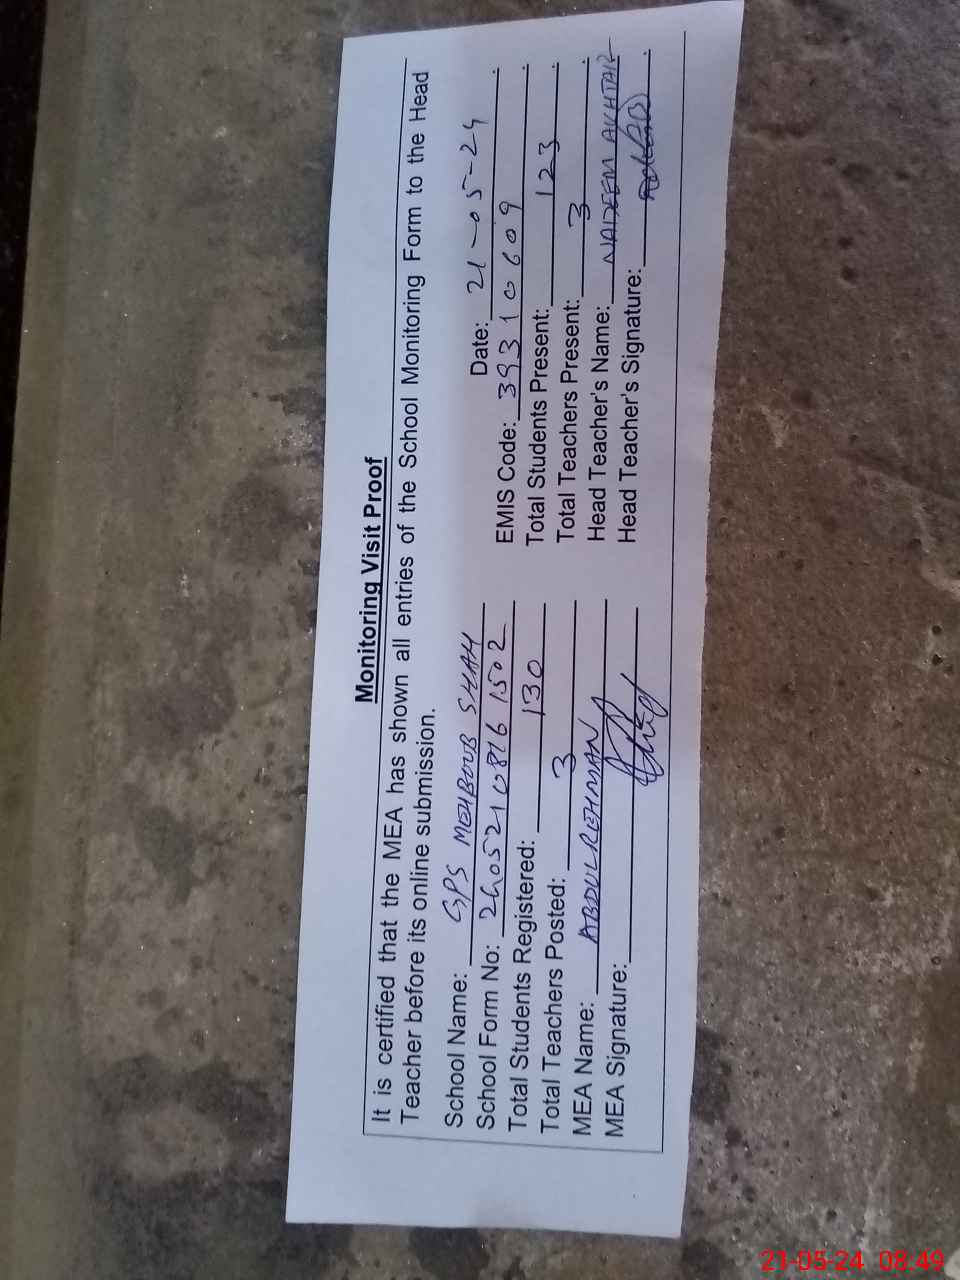 Monitoring Visit Proof
It is certified that the MEA has shown all entries of the School Monitoring Form to the Head
Teacher before its online submission.
School Name: GPS MEHBOUB SHAH Date: 21-05-24
School Form No: 2405210816 1502 EMIS Code: 39310609
Total Students Registered: 130 Total Students Present: 123
Total Teachers Posted: 3 Total Teachers Present: 3
MEA Name: ABDUL REHMAN Head Teacher's Name: NADEEM AKHTAR
MEA Signature: Head Teacher's Signature:
21-05-24 08:49